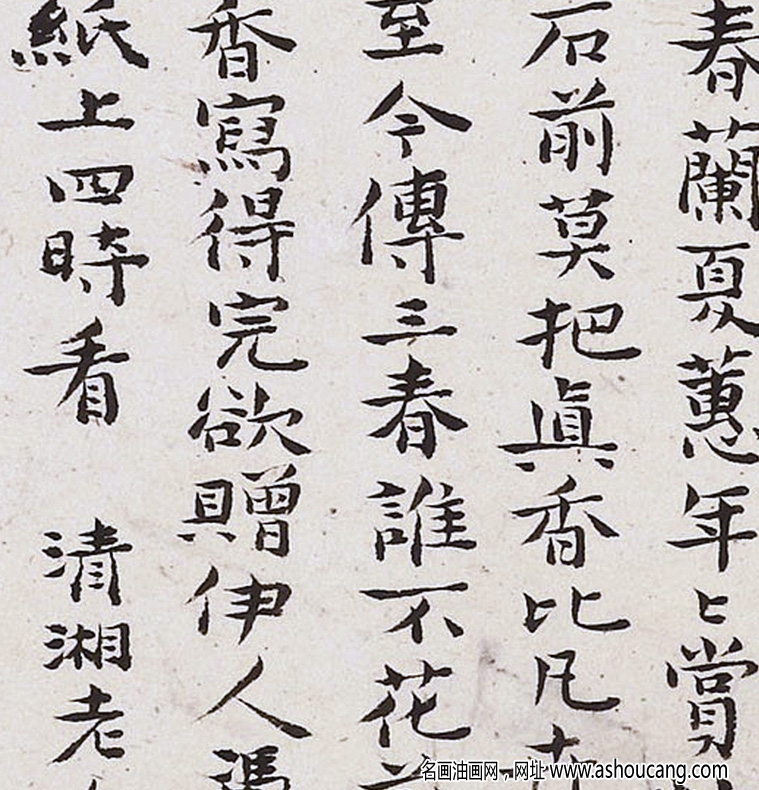 春蘭夏蕙年〻賞
石前莫把真香比凡卉
至今傳三春誰不花
香寫得完欲贈伊人馮
紙上四時看 清湘老
名画油画网，网址 www.ashoucang.com